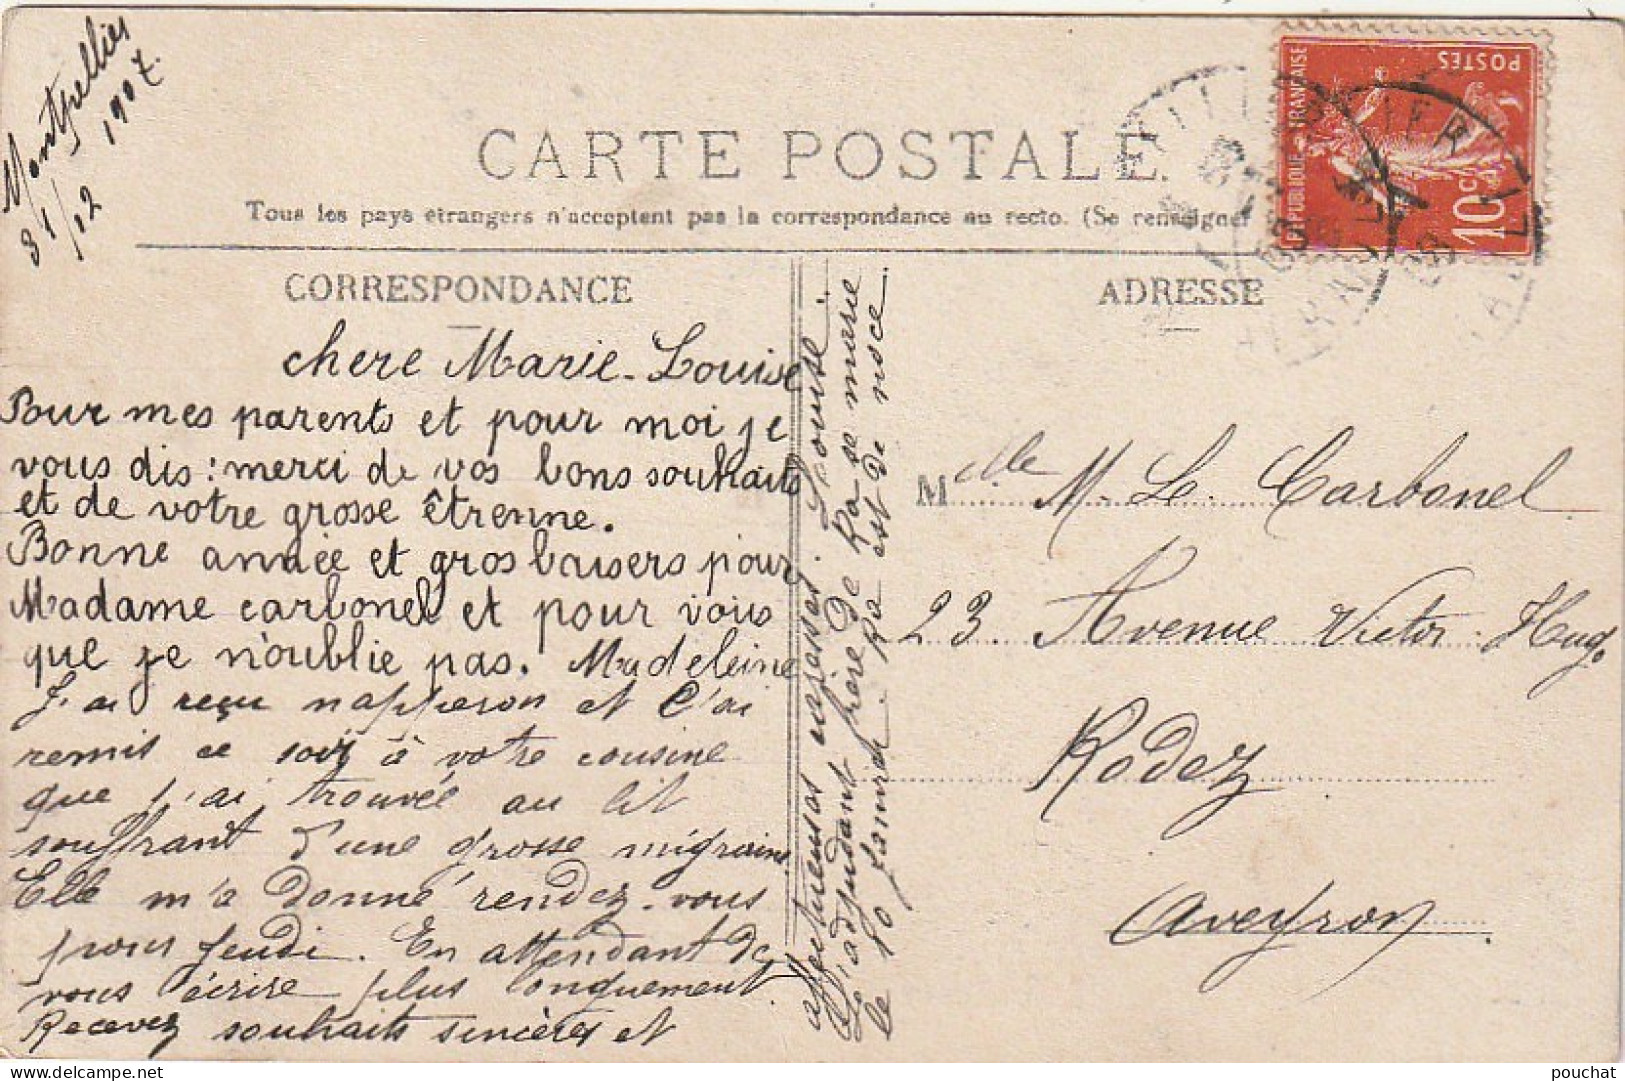 Montpellier
31/12 1907.
CARTE POSTALE
Tous les pays étrangers n'acceptent pas la correspondance au recto. (Se renseigner
REPUBLIQUE FRANÇAISE
POSTES
10c
CORRESPONDANCE
chere Marie-Louise
Pour mes parents et pour moi je
vous dis: merci de vos bons souhaits
et de votre grosse étrenne.
Bonne année et gros baisers pour
Madame carbonel et pour vous
que je n'oublie pas. Madeleine
J'ai reçu napperon et l'ai
remis ce soir à votre cousine
que j'ai trouvée au lit
souffrant d'une grosse migraine
Elle m'a donné rendez-vous
pour jeudi. En attendant de
vous écrire plus longuement.
Recevez souhaits sincères et
affectueuses
L'adjudant frère de Ra se marie
le 10 Janvier. Ra est de noce.
ADRESSE
Mlle M. L. Carbonel
23. Avenue Victor Hugo
Rodez
Aveyron.
pouchat